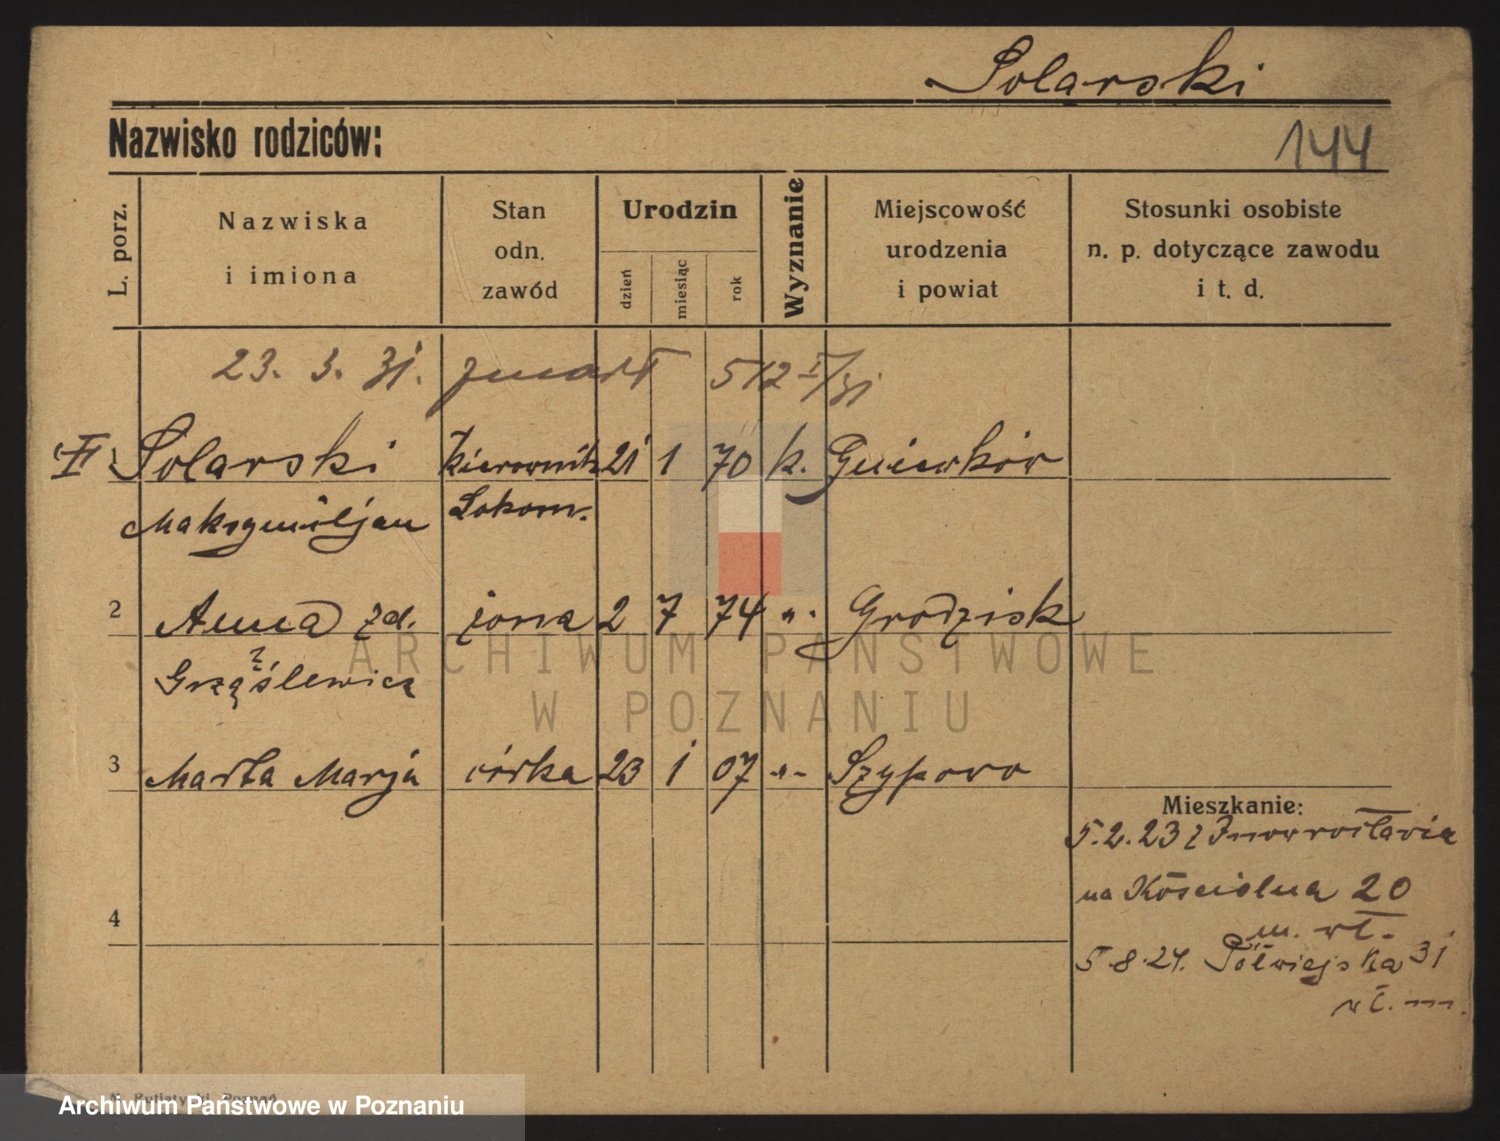 Solarski
Nazwisko rodziców:
144
L. porz.
Nazwiska
i imiona
Stan
odn.
zawód
Urodzin
dzień
miesiąc
rok
Wyznanie
Miejscowość
urodzenia
i powiat
Stosunki osobiste
n. p. dotyczące zawodu
i t. d.
23. 3. 31. zmarł 512 I/31
1 Solarski Kierownik 21 1 70 k. Gniewków
Maksymiljan Lokom.
2 Anna zd. żona 2 7 74 „ Grodzisk
Grząślewicz
3 Marta Marja córka 23 1 07 -„- Szypowo
Mieszkanie:
5.2.23 z Inowrocławia
na Kościelna 20
m. wł.
4
5.8.24. Półwiejska 31
wł. m.
Poznań
ARCHIWUM PAŃSTWOWE
W POZNANIU
Archiwum Państwowe w Poznaniu